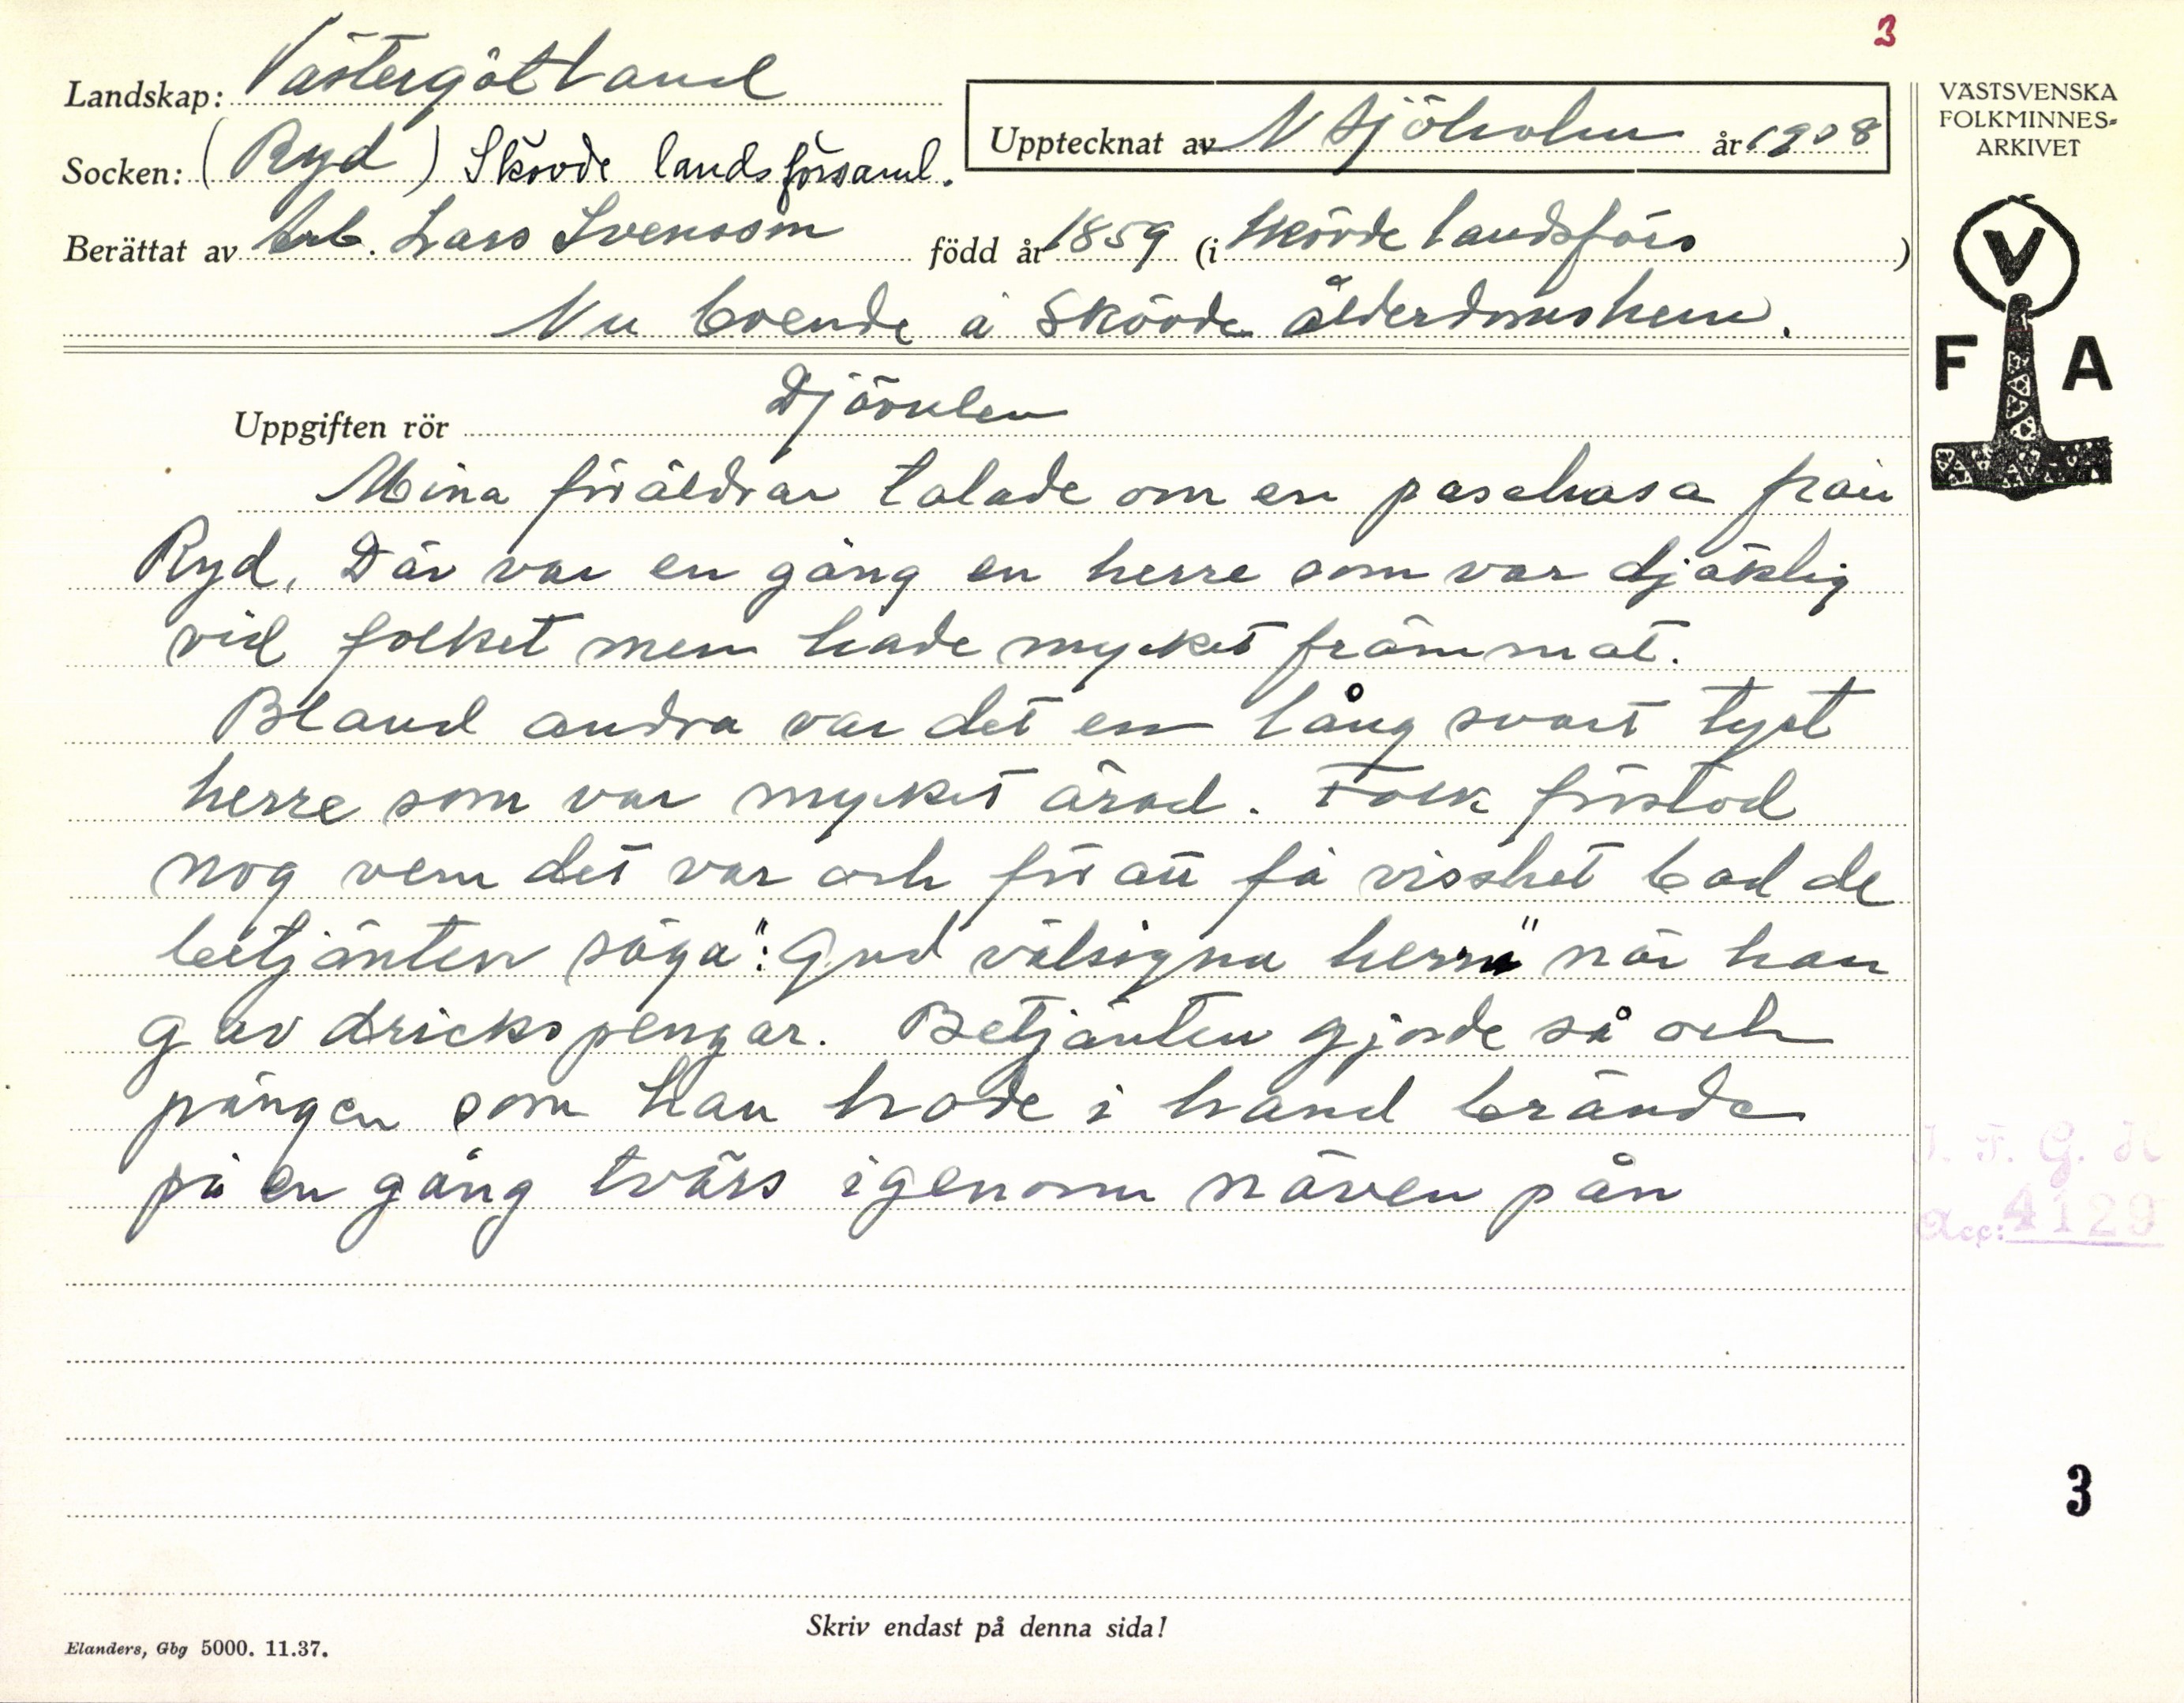 3
Landskap: Västergötland
Socken: (Ryd) Skövde landsförsaml.
Upptecknat av N Sjöholm år 1908
Berättat av Arb. Lars Svensson född år 1859 (i Skövde landsförs)
Nu boende å Skövde ålderdomshem.
VÄSTSVENSKA
FOLKMINNES-
ARKIVET
V
F A
Uppgiften rör Djävulen
Mina föräldrar talade om en paschasa från
Ryd. Där var en gång en herre som var djäklig
vid folket men hade mycket främmat.
Bland andra var det en lång svart tyst
herre som var mycket ärad. Folk förstod
nog vem det var och för att få visshet bad de
betjänten säga": Gud välsigna herrn" när han
gav drickspengar. Betjänten gjorde så och
pängen som han hade i hand brände
på en gång tvärs igenom näven pån
I. F. G. H
Acc: 4129
3
Skriv endast på denna sida!
Elanders, Gbg 5000. 11.37.